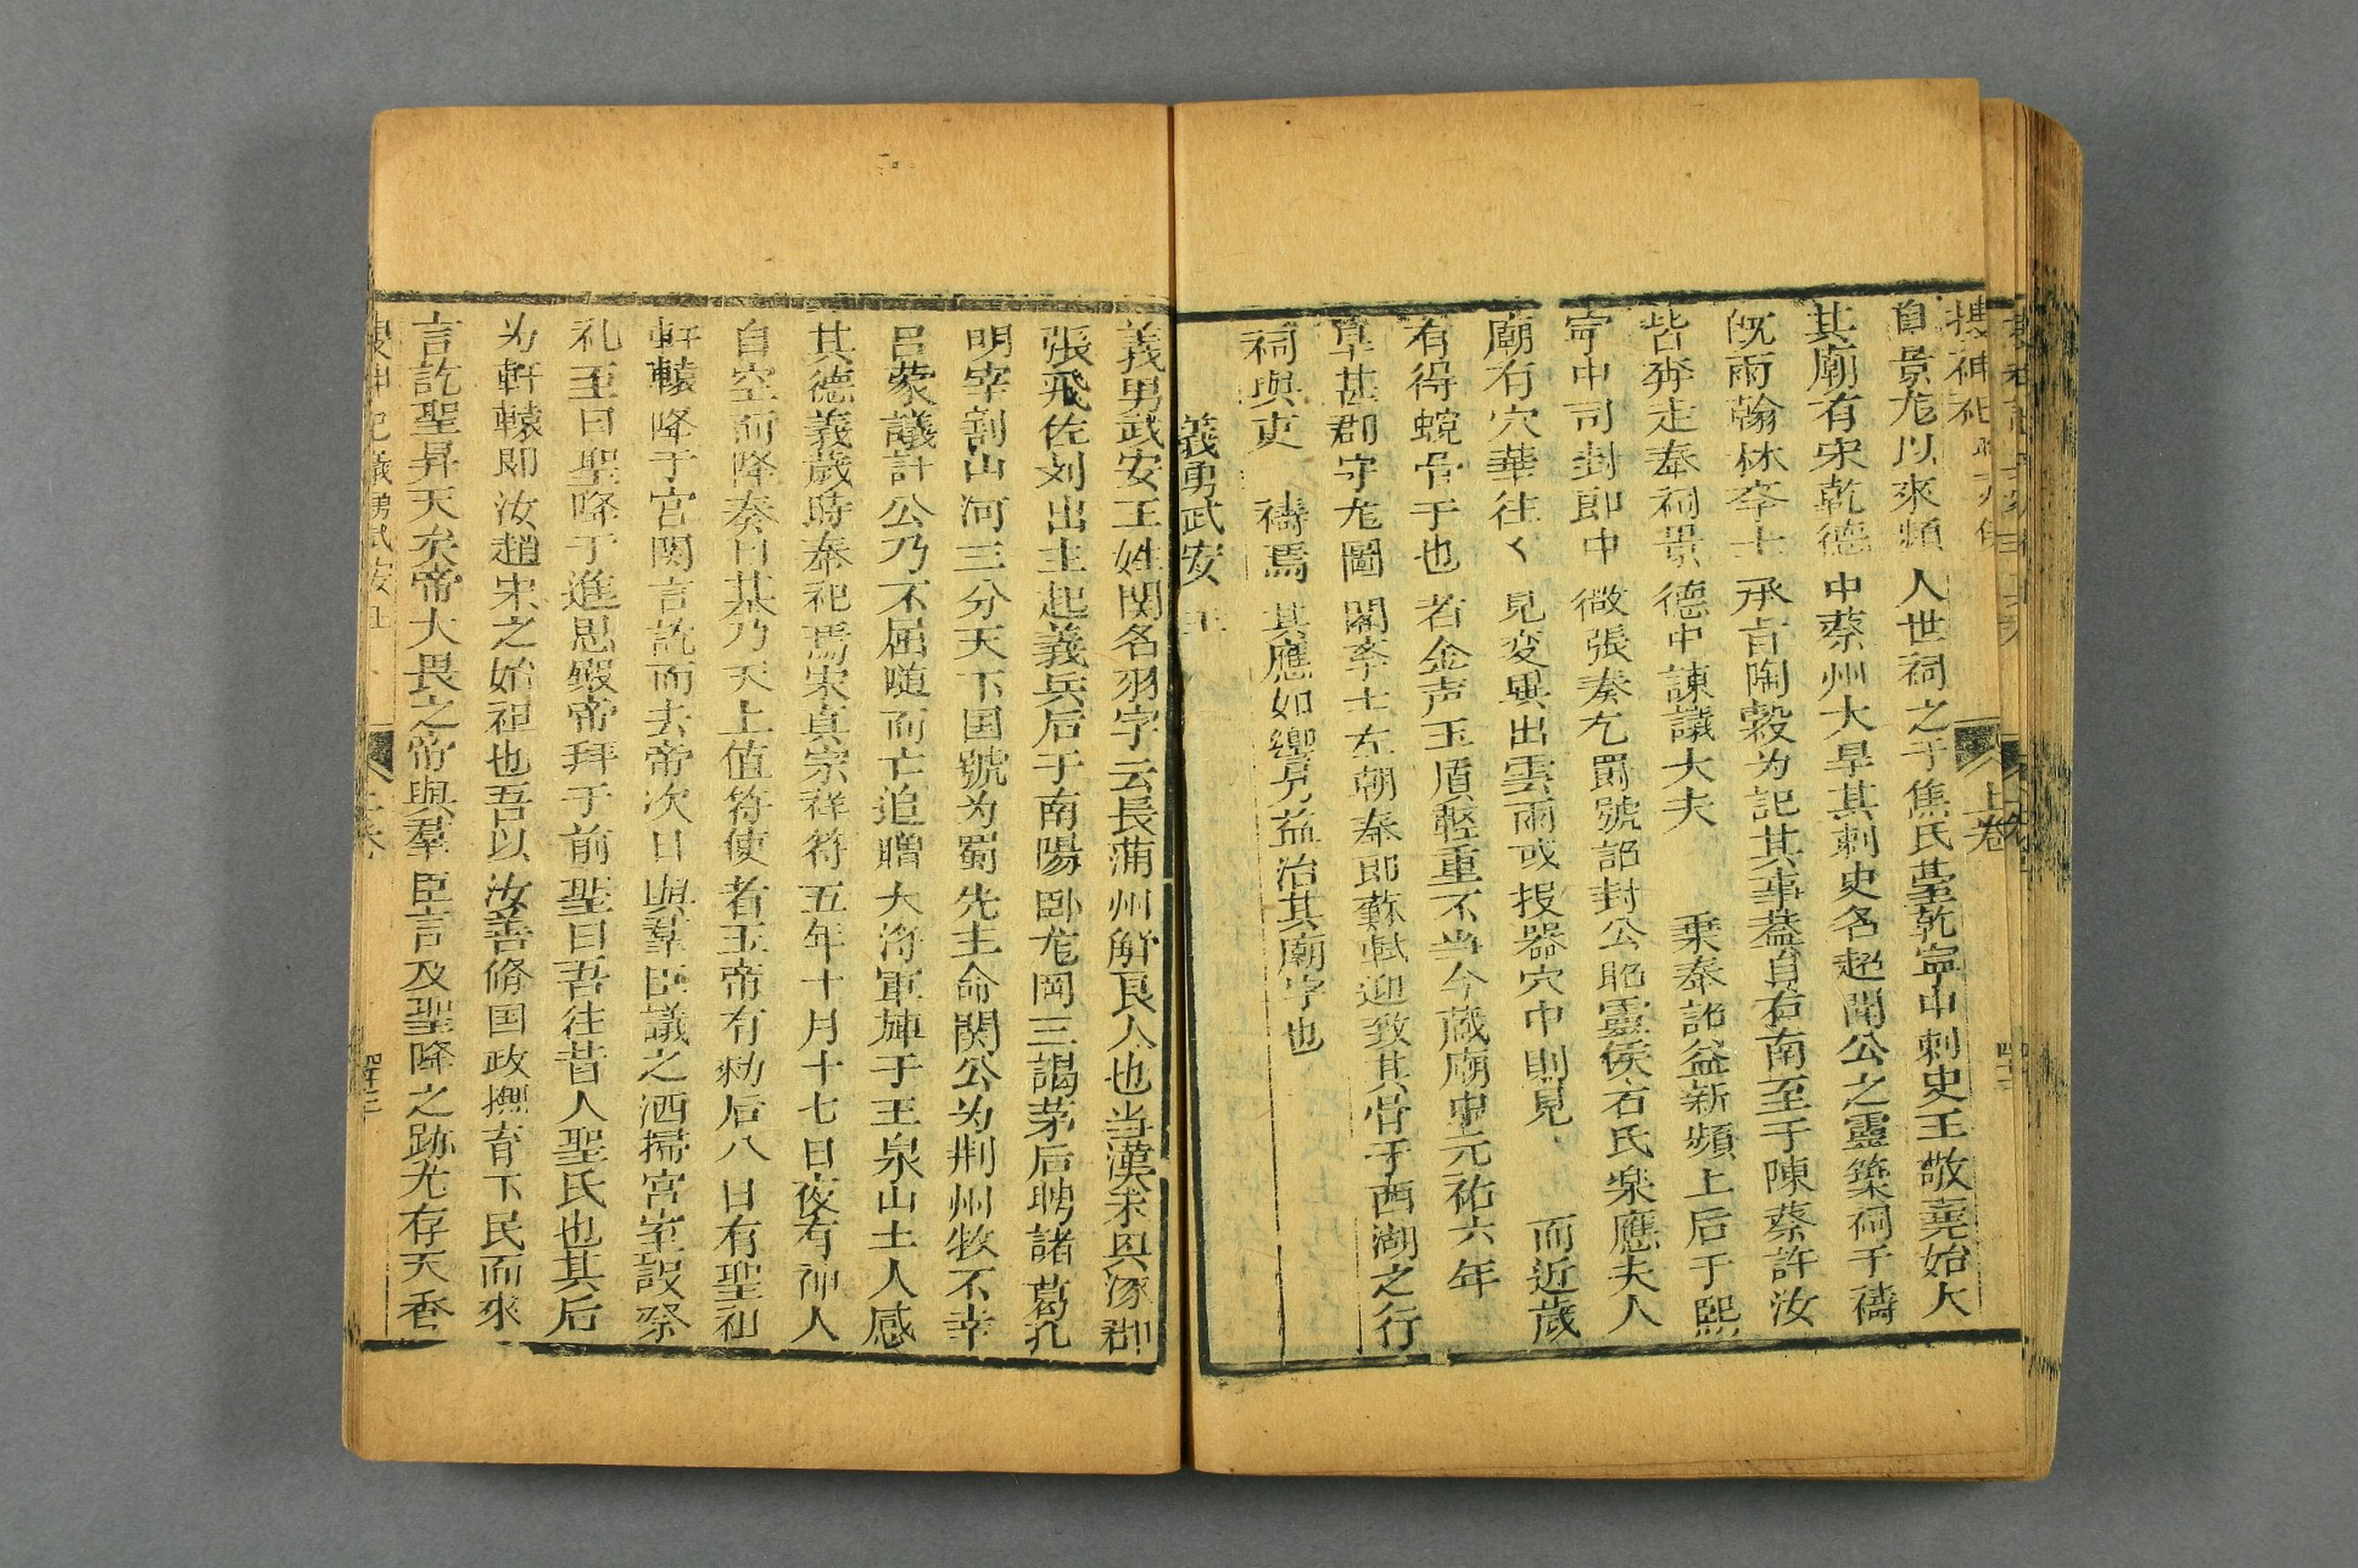 搜神記
上卷
自景龙以來頻人世祠之于焦氏墓乾寧中刺史王敬蕘始大
其廟有宋乾德中蔡州大旱其刺史名超聞公之靈築祠于禱
既雨翰林李士承旨陶穀为記其事葢自右南至于陳蔡許汝
皆奔走奉祠景德中諫議大夫乗奉詔益新頻上后于熙
寧中司封郎中微張奏乞爵號詔封公昭靈侯右氏梁應夫人
廟有穴華往〻見変異出雲雨或投器穴中則見而近歲
有得蜕骨于也若金声玉質輕重不当今蔵廟中元祐六年
旱甚郡守龙圖閣李士左朝奉郎蘇軾迎致其骨于西湖之行
祠與吏禱焉其應如響乃益治其廟宇也
義勇武安王
義勇武安王姓関名羽字云長蒲州解良人也当漢末與涿郡
張飛佐刘出主起義兵后于南陽卧龙岡三謁茅后聘諸葛孔
明宰割山河三分天下国號为蜀先主命関公为荆州牧不幸
吕蒙議計公乃不屈随而亡追贈大将軍塟于玉泉山土人感
其德義歲時奉祀焉宋真宗祥符五年十月十七日夜有神人
自空而降奏曰某乃天上值符使者玉帝有勑后八日有聖祖
軒轅降于宮関言訖而去帝次日與羣臣議之洒掃宮室設祭
礼至日聖降于進思殿帝拜于前聖曰吾往昔人聖氏也其后
为軒轅即汝趙宋之始祖也吾以汝善脩国政撫育下民而來
言訖聖昇天矣帝大畏之帝與羣臣言及聖降之跡尤存天香